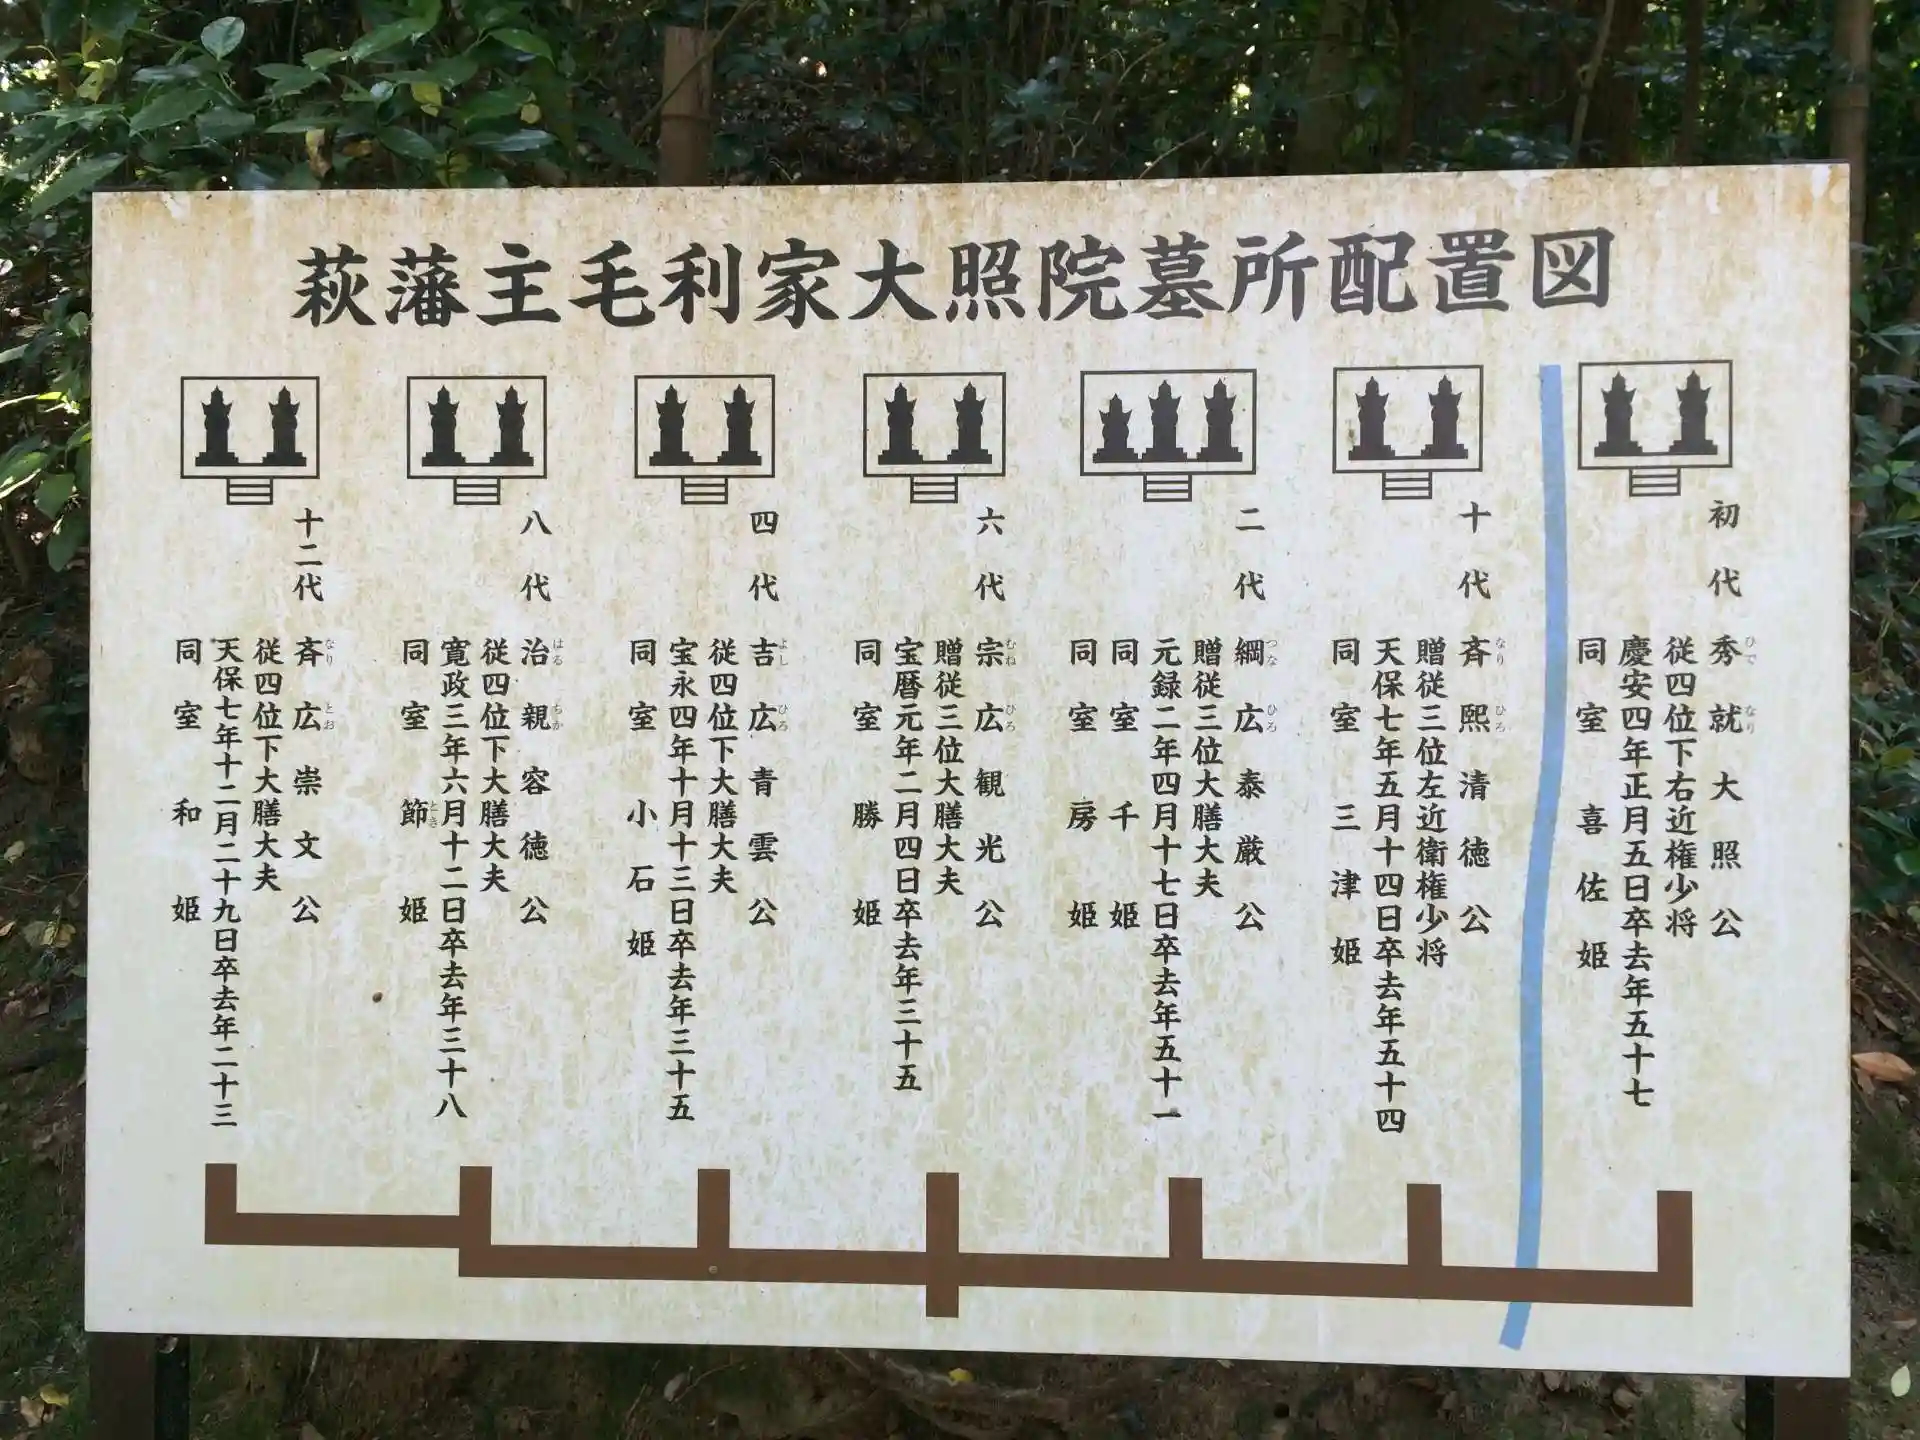 萩藩主毛利家大照院墓所配置図
初代 秀就大照公
ひで なり
従四位下右近権少将
慶安四年正月五日卒去年五十七
同室 喜佐姫
十代 斉熙清徳公
なり ひろ
贈従三位左近衛権少将
天保七年五月十四日卒去年五十四
同室 三津姫
二代 綱広泰厳公
つな ひろ
贈従三位大膳大夫
元録二年四月十七日卒去年五十一
同室 千姫
同室 房姫
六代 宗広観光公
むね ひろ
贈従三位大膳大夫
宝暦元年二月四日卒去年三十五
同室 勝姫
四代 吉広青雲公
よし ひろ
従四位下大膳大夫
宝永四年十月十三日卒去年三十五
同室 小石姫
八代 治親容徳公
はる ちか
従四位下大膳大夫
寛政三年六月十二日卒去年三十八
同室 節姫
とき
十二代 斉広崇文公
なり とお
従四位下大膳大夫
天保七年十二月二十九日卒去年二十三
同室 和姫